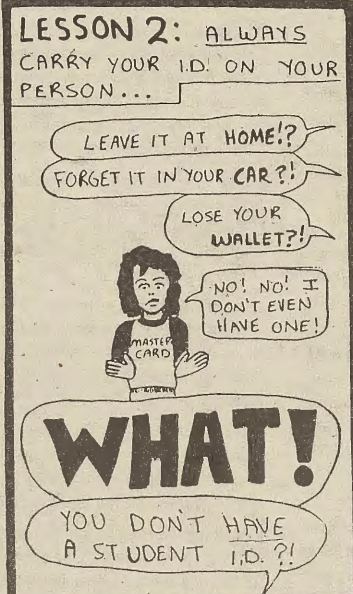 LESSON 2: ALWAYS
CARRY YOUR I.D. ON YOUR
PERSON...
LEAVE IT AT HOME!?
FORGET IT IN YOUR CAR?!
LOSE YOUR
WALLET?!
NO! NO! I
DON'T EVEN
HAVE ONE!
MASTER
CARD
WHAT!
YOU DON'T HAVE
A STUDENT I.D.?!